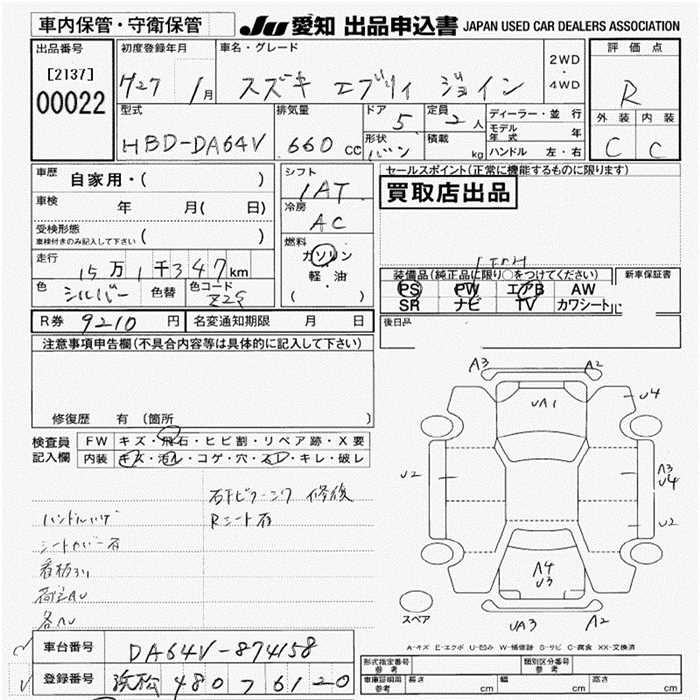 車内保管・守衛保管
JU 愛知 出品申込書 JAPAN USED CAR DEALERS ASSOCIATION
出品番号
[2137]
00022
初度登録年月
H27 1月
車名・グレード
スズキ エブリィ ジョイン
2WD・4WD
評価点
R
外装 内装
C C
型式
HBD-DA64V
排気量
660 cc
ドア
5
形状
バン
定員
2人
積載
kg
ディーラー・並行
モデル年式 年
ハンドル 左・右
車歴
自家用・( )
車検
年 月( 日)
受検形態
車検付きのみ記入して下さい ( )
走行
15万1千347km
色
シルバー
色替
色コード
Z2S
シフト
1AT
冷房
AC
燃料
ガソリン
軽・油
( )
セールスポイント(正常に機能するものに限ります)
買取店出品
装備品(純正品に限り○をつけてください)
PS PW エアB AW
SR ナビ TV カワシート
新車保証書
後日品
R券 9210円
名変通知期限 月 日
注意事項申告欄(不具合内容等は具体的に記入して下さい)
修復歴 有(箇所 )
検査員記入欄
FW キズ・飛石・ヒビ割・リペア跡・X要
内装 キズ・汚れ・コゲ・穴・スレ・キレ・破レ
右Fピラーニング 修復
ハンドルハゲ
Rシート有
シートカバー有
看板スリ
荷室AU
各AU
A3 A2
UA1
U4
U2
A3
U4
U2
A4
U3
UA3 A2
スペア
A-キズ E-エクボ U-凹み W-補修跡 S-サビ C-腐食 XX-交換済
車台番号
DA64V-874158
登録番号
浜松 480 ァ 6120
形式指定番号
参考
類別区分番号
参考
車庫証明用
参考
長さ cm 幅 cm 高さ cm